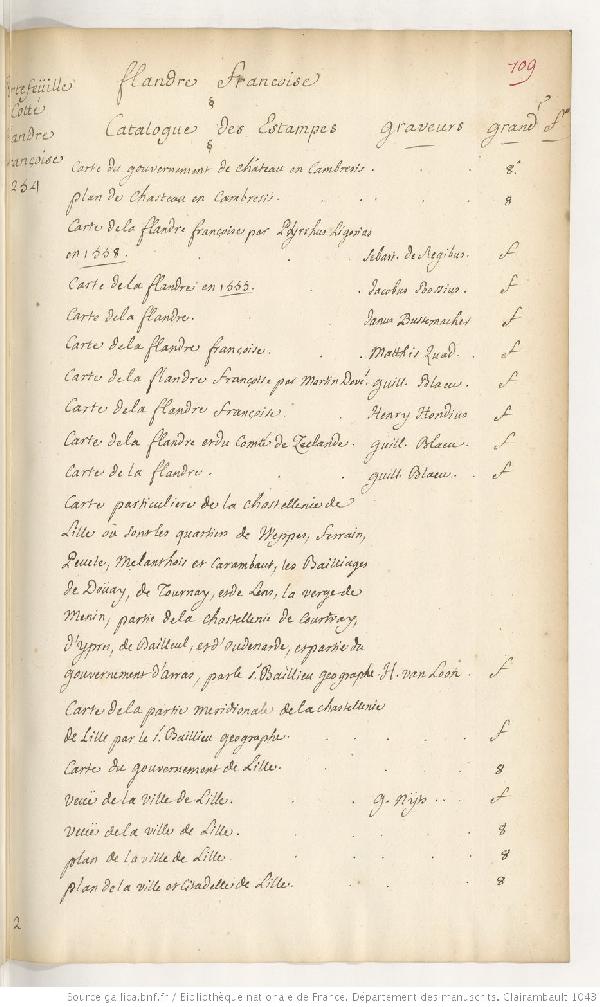 109
flandre françoise
Catalogue des Estampes graveurs grandr
Cotté
234
Carte du gouvernement de château en Cambresis. 8.
plan de Chasteau en Cambresis. 8
Carte de la flandre françoise par Ligorius
en 1558. sebast. de Regibus. f
Carte de la flandre en 1555. Jacobus Bossius. f
Carte de la flandre. Bussemacher f
Carte de la flandre françoise. Matthis Quad. f
Carte de la flandre françoise par Martin Doué guill. Blaeu. f
Carte de la flandre françoise. Henry Hondius f
Carte de la flandre et du Comté de Zeelande. guill. Blaeu. f
Carte de la flandre. guill. Blaeu. f
Carte particuliere de la chastellenie de
Lille où sont les quartiers de Weppes, ferrain,
Pevele, Melanthois et Carambaut, les Bailliages
de Doüay, de Tournay, et de Lens, la verge de
Menin, partie de la chastellenie de Courtray,
d'Ypres, de Bailleul, et d'oudenarde, et partie du
gouvernement d'arras, par le sr. Baillieu geographe. H. van Loon. f
Carte de la partie meridionale de la chastellenie
de Lille par le sr. Baillieu geographe. f
Carte du gouvernement de Lille. 8
veuë de la ville de Lille. g. f
veuë de la ville de Lille. 8
plan de la ville de Lille. 8
plan de la ville et Citadelle de Lille. 8
2
Source gallica.bnf.fr / Bibliothèque nationale de France. Département des manuscrits. Clairambault 1043